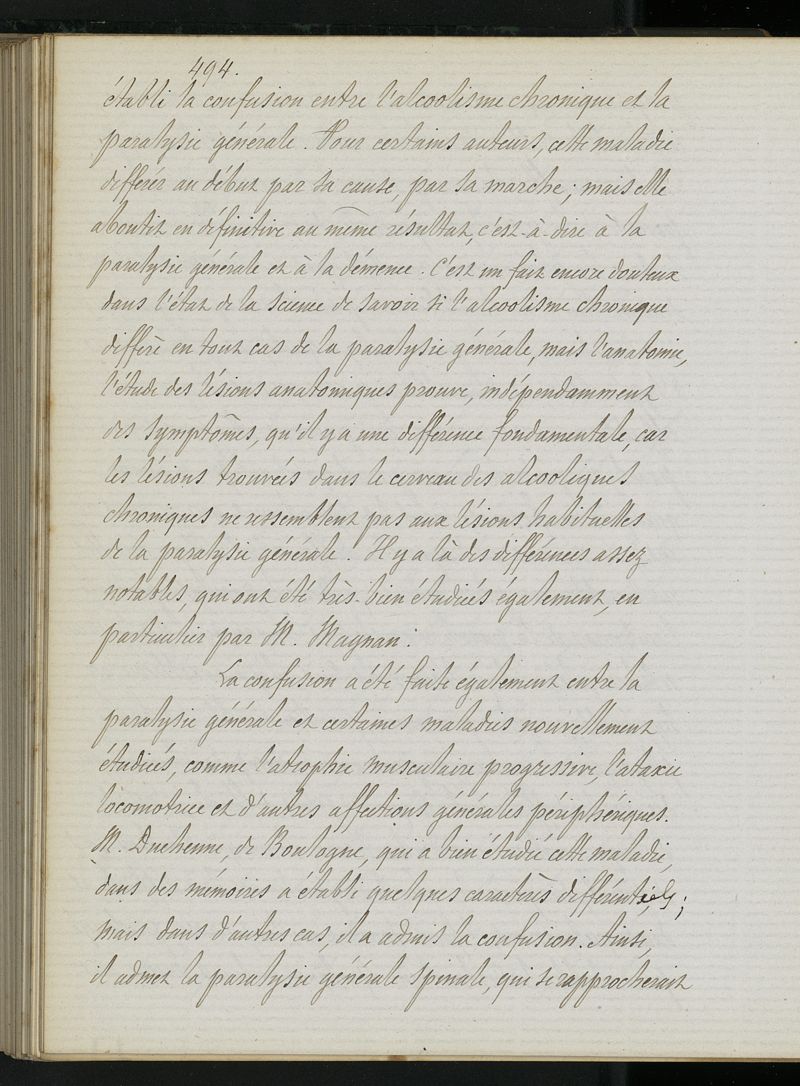 494.
établi la confusion entre l'alcoolisme chronique et la
paralysie générale. Pour certains auteurs, cette maladie
différer au début par sa cause, par sa marche ; mais elle
aboutit en définitive au même résultat, c'est-à-dire à la
paralysie générale et à la démence. C'est un fait encore douteux
dans l'état de la science de savoir si l'alcoolisme chronique
diffère en tout cas de la paralysie générale, mais l'anatomie,
l'étude des lésions anatomiques prouve, indépendamment
des symptômes, qu'il y a une différence fondamentale, car
les lésions trouvées dans le cerveau des alcooliques
chroniques ne ressemblent pas aux lésions habituelles
de la paralysie générale. Il y a là des différences assez
notables, qui ont été très-bien étudiées également, en
particulier par M. Magnan.
La confusion a été faite également entre la
paralysie générale et certaines maladies nouvellement
étudiées, comme l'atrophie musculaire progressive, l'ataxie
locomotrice et d'autres affections générales périphériques.
M. Duchenne, de Boulogne, qui a bien étudié cette maladie,
dans des mémoires a établi quelques caractères différentiels ;
mais dans d'autres cas, il a admis la confusion. Ainsi,
il admet la paralysie générale spinale, qui se rapprocherait